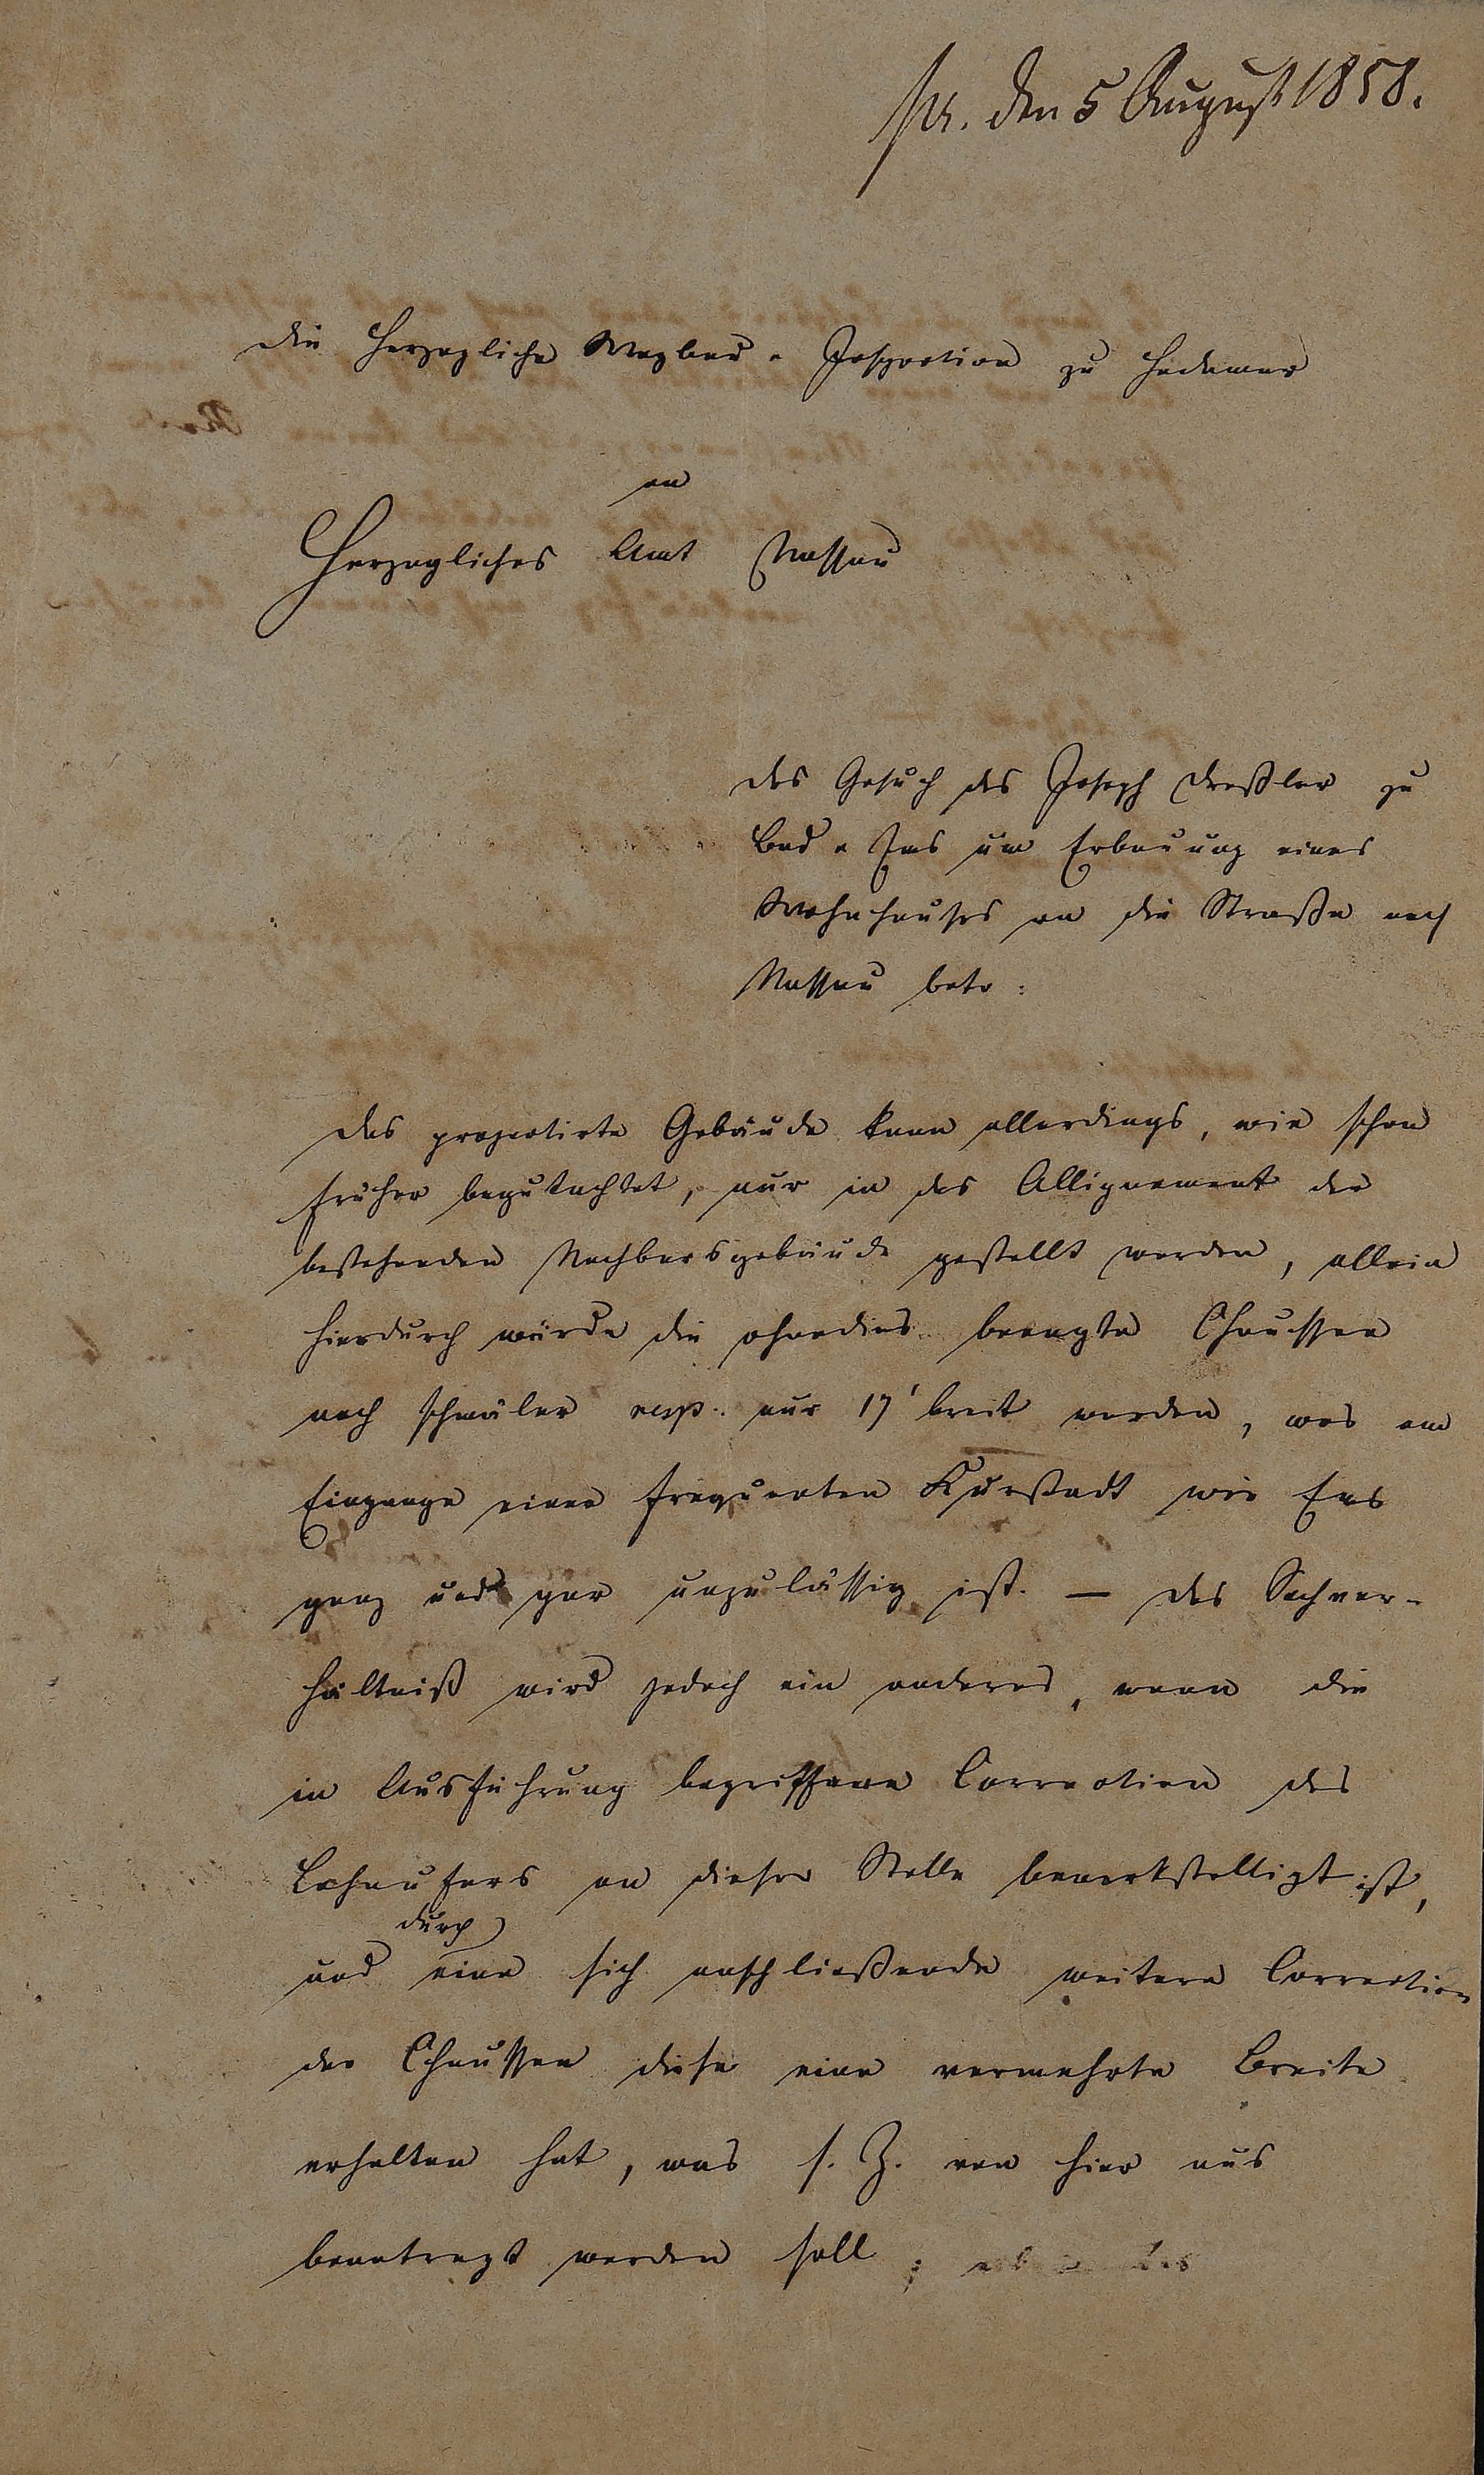 pr. den 5 August 1858.
Die Herzogliche Wegbau-Inspection zu Hadamar
an
Herzogliches Amt Nassau
Das Gesuch des Joseph Dreßler zu
Bad-Ems um Erbauung eines
Wohnhauses an die Straße nach
Nassau betr:
Das projectirte Gebäude kann allerdings, wie schon
früher begutachtet, nur in das Allignement der
bestehenden Nachbarsgebäude gestellt werden, allein
hierdurch würde die ohnedies beengte Chaussee
noch schmäler resp. nur 17' breit werden, was am
Eingange einer frequenten Kurstadt wie Ems
ganz und gar unzulässig ist. — Das Sachver-
hältniß wird jedoch ein anderes, wenn die
in Ausführung begriffene Correction des
Lahnufers an dieser Stelle bewerkstelligt ist,
durch
und eine sich anschließende weitere Correction
der Chaussee diese eine vermehrte Breite
erhalten hat, was s. Z. von hier aus
beantragt werden soll;